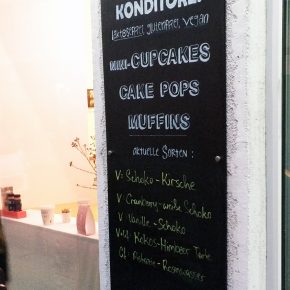 KONDITOREI
laktosefrei, glutenfrei, vegan
MINI-CUPCAKES
CAKE POPS
MUFFINS
aktuelle Sorten :
V: Schoko-Kirsche
V Cranberry-weiße Schoko
V Vanille-Schoko
Kokos-Himbeer Torte
Rosenwasser